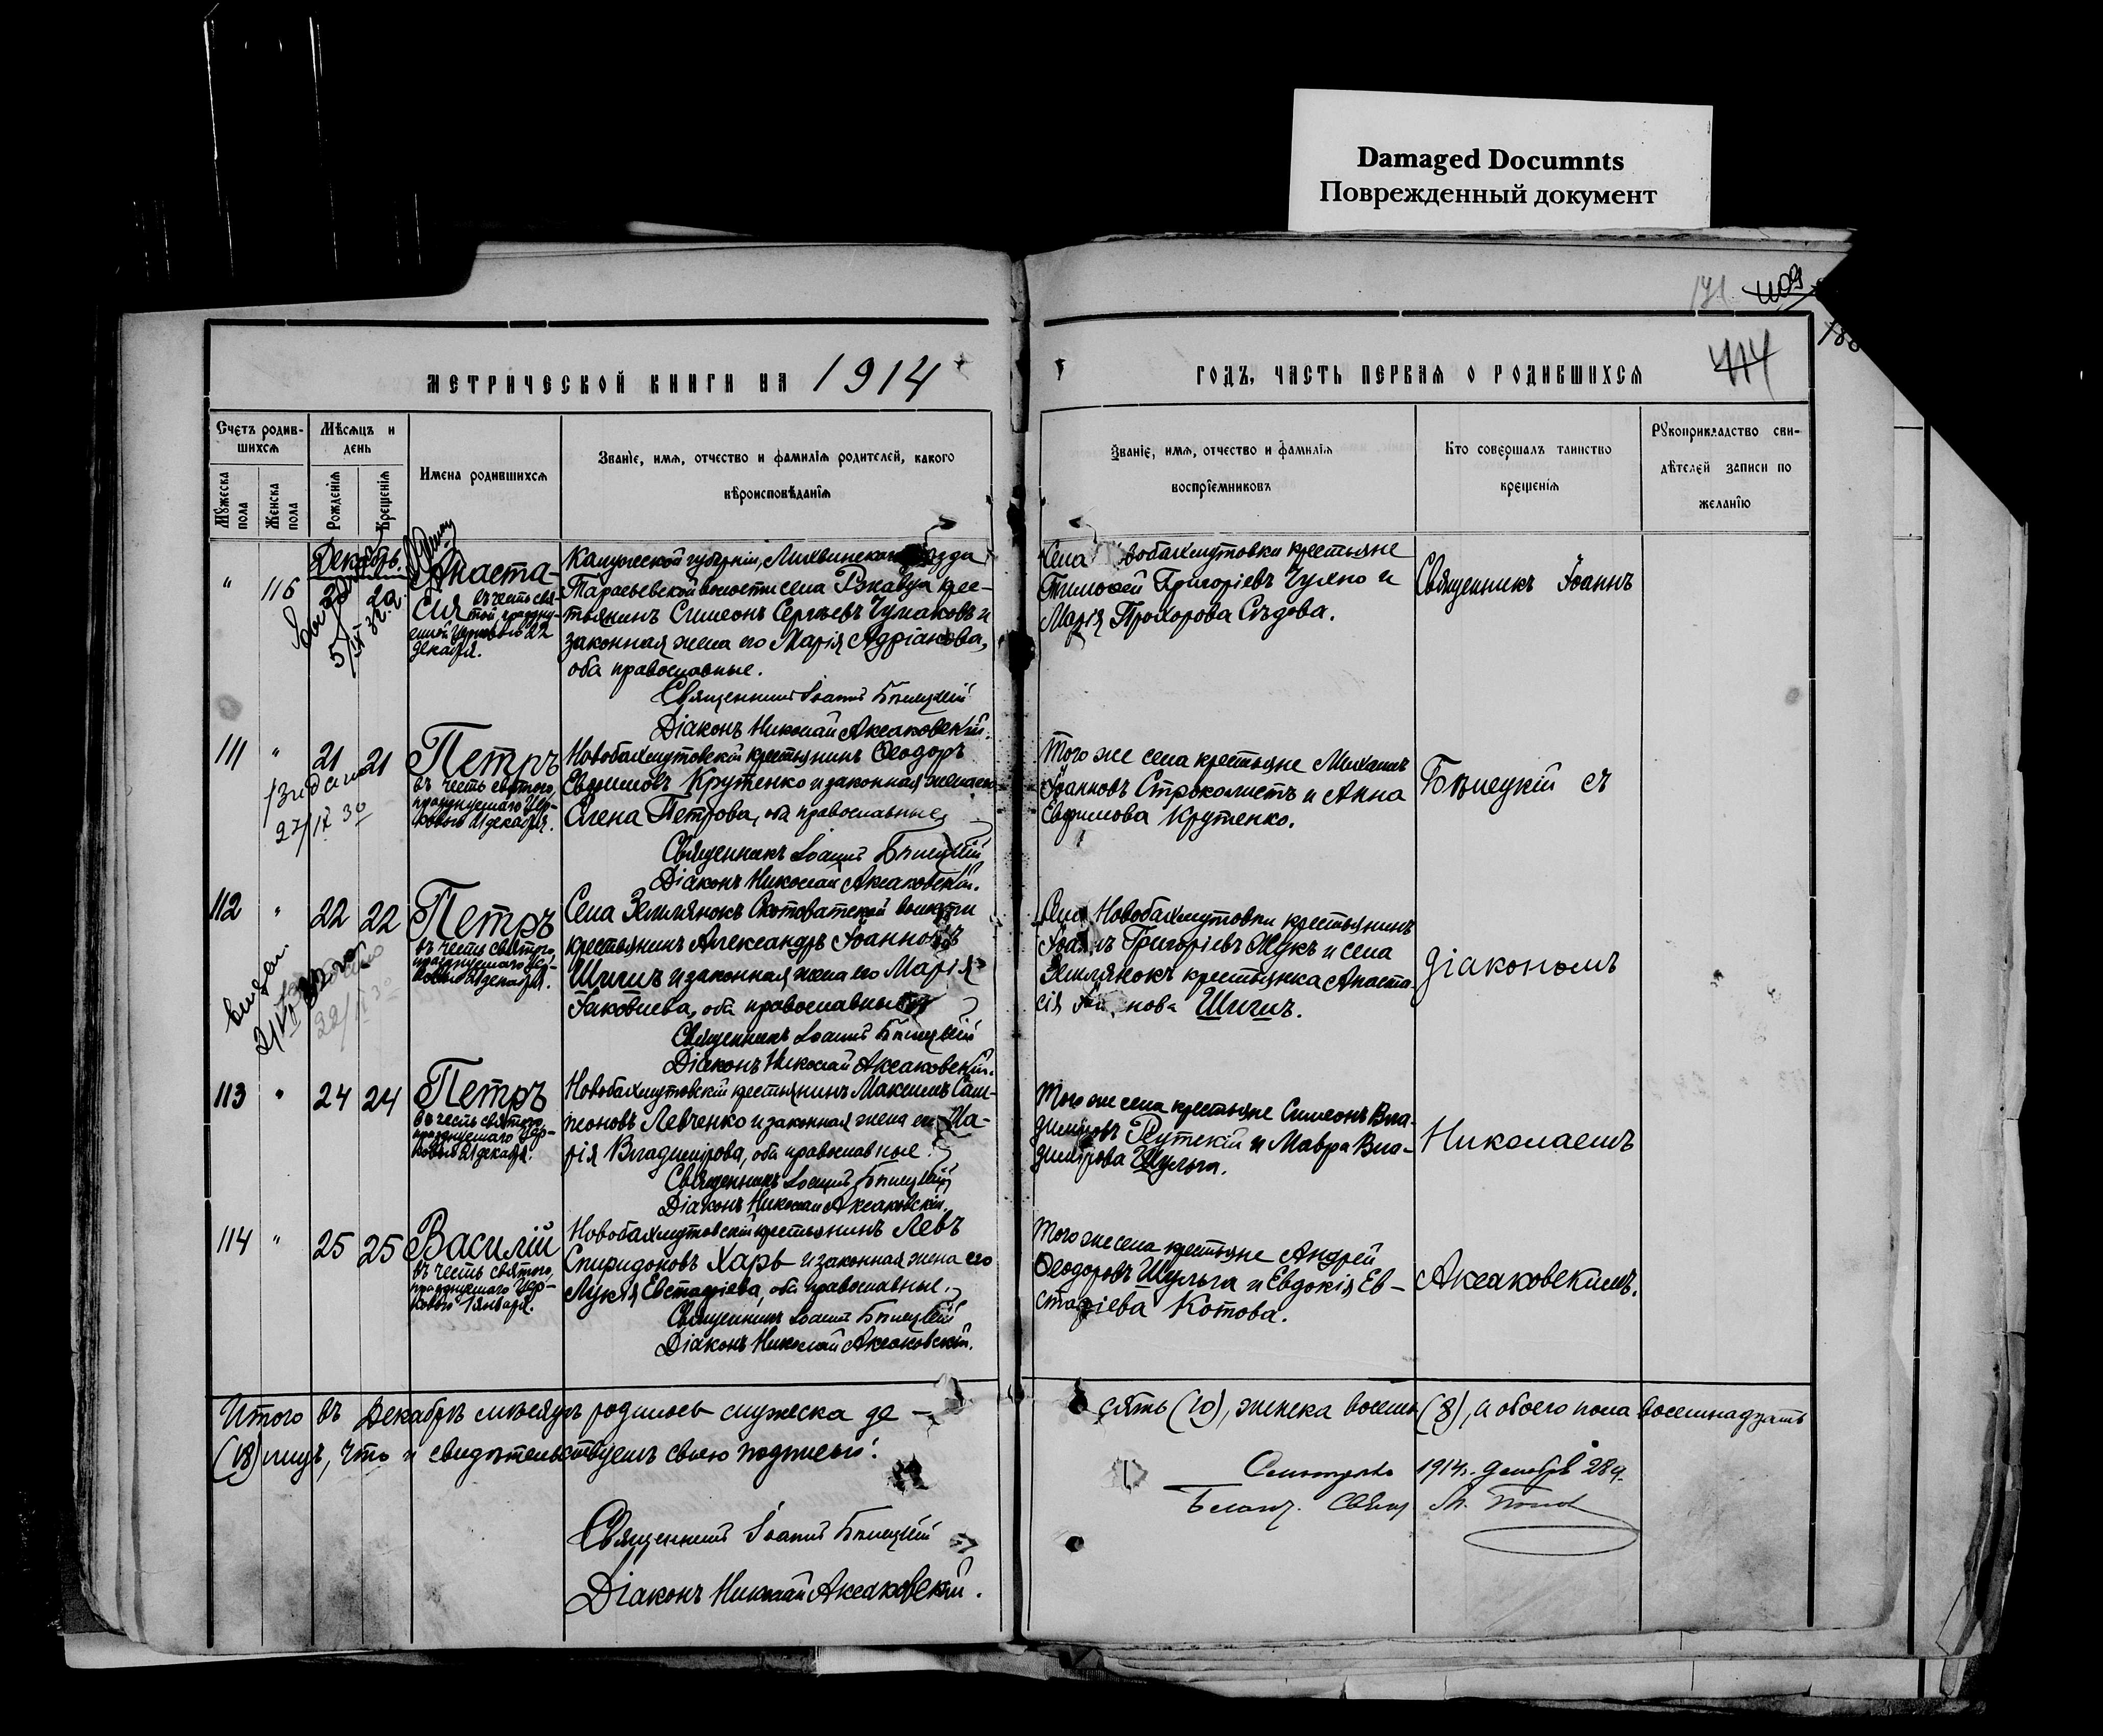 Damaged Documnts
Поврежденный документ
141
414
МЕТРИЧЕСКОЙ КНИГИ НА 1914
ГОДЪ, ЧАСТЬ ПЕРВАЯ О РОДИВШИХСЯ
Счетъ родив-
шихся
Мужеска пола
Женска пола
Мѣсяцъ и
день
Рожденія
Крещенія
Имена родившихся
Званіе, имя, отчество и фамилія родителей, какого
вѣроисповѣданія
Званіе, имя, отчество и фамилія
воспріемниковъ
Кто совершалъ таинство
крещенія
Рукоприкладство сви-
дѣтелей записи по
желанію
Декабрь.
" 116
Анаста-
сія въ честь свя-
той, праздну-
емой Церковью 22
декабря.
Калужской губерніи, Лихвинскаго
волости села Ржавца крес-
тьянинъ Симеонъ Сергѣевъ Чумаковъ и
законная жена его Марія Адріанова,
оба православные.
Священникъ Іоаннъ Бѣлецкій
Діаконъ Николай Аксаковскій.
Села Новобахмутовки крестьяне
Тимофей Григоріевъ и
Марія Прохорова Сѣдова.
Священникъ Іоаннъ
111 " 21 21
Петръ
въ честь святого,
празднуемаго Цер-
ковью 21 декабря.
Новобахмутовскій крестьянинъ Ѳеодоръ
Евфимовъ Крутенко и законная жена его
Елена Петрова, оба православные
Священникъ Іоаннъ Бѣлецкій
Діаконъ Николай Аксаковскій.
Того же села крестьяне Михаилъ
Іоанновъ Строколистъ и Анна
Евфимова Крутенко.
Бѣлецкій съ
112 " 22 22
Петръ
въ честь святого,
празднуемаго Цер-
ковью 21 декабря.
Села Землянокъ Скотоватской волости
крестьянинъ Александръ Іоанновъ
Шигиъ и законная жена его Марія
Іаковлева, оба православные
Священникъ Іоаннъ Бѣлецкій
Діаконъ Николай Аксаковскій.
Села Новобахмутовки крестьянинъ
Іоаннъ Григоріевъ Жукъ и села
Землянокъ крестьянка Анаста-
сія
діакономъ
113 " 24 24
Петръ
въ честь святого,
празднуемаго Цер-
ковью 21 декабря.
Новобахмутовскій крестьянинъ Максимъ Сам-
псоновъ Левченко и законная жена его Ма-
рія Владимірова, оба православные.
Священникъ Іоаннъ Бѣлецкій
Діаконъ Николай Аксаковскій.
Того же села крестьяне Симеонъ Вла-
диміровъ Реутскій и Мавра Вла-
димірова Шульга.
Николаемъ
114 " 25 25
Василій
въ честь святого,
празднуемаго Цер-
ковью 1 января.
Новобахмутовскій крестьянинъ Левъ
Спиридоновъ Харь и законная жена его
Лукія Евстафіева, оба православные.
Священникъ Іоаннъ Бѣлецкій
Діаконъ Николай Аксаковскій.
Того же села крестьяне Андрей
Ѳеодоровъ Шульга и Евдокія Ев-
стафіева Котова.
Аксаковскимъ.
Итого въ Декабрѣ мѣсяцѣ родилось мужеска де-
сять (10), женска восемь (8), а обоего пола восемнадцать
(18) лицъ, что и свидѣтельствуемъ своею подписью:
1914 г. декабря 28 д.
Священникъ Іоаннъ Бѣлецкій
Діаконъ Николай Аксаковскій.